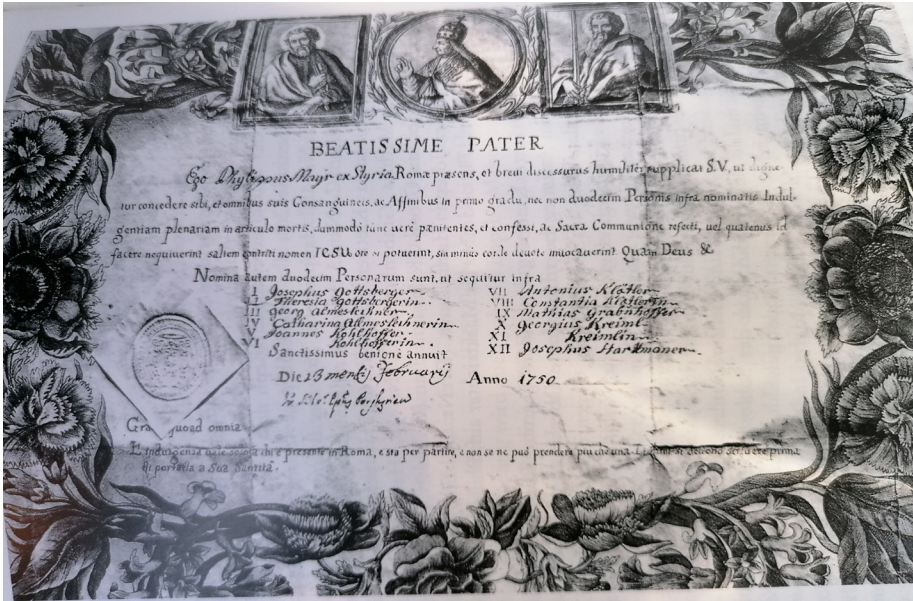 BEATISSIME PATER
Ego Phylippus Mayr ex Styria Romæ præsens, et brevi discessurus humiliter supplicat S.V, ut digne-
tur concedere sibi, et omnibus suis Consanguineis, ac Affinibus in primo gradu, nec non duodecim Personis infra nominatis Indul-
gentiam plenariam in articulo mortis, dummodo tunc verè pænitentes, et confessi, ac Sacra Communione refecti, vel quatenus id
facere nequiverint saltem contriti nomen IESU ore si potuerint, sin minus corde devote invocaverint Quam Deus &
Nomina autem duodecim Personarum sunt, ut sequitur infra
I Josephus Gottsberger
II Theresia Gottsbergerin
III Georg Almesleithner
IV Catharina Almesleithnerin
V Joannes Kohlhoffer
VI Kohlhofferin
VII Antonius Klötler
VIII Constantia Klötlerin
IX Mathias Grabnhoffer
X Georgius Kreiml
XI Kreimlin
XII Josephus Hartmaner
Sanctissimus benigne annuit
Die 13 mensis Februarij Anno 1750
Gratis quoad omnia
L'Indulgenza vale solo a chi è presente in Roma, e sta per partire, e non se ne può prendere più che una. Li nomi si devono scrivere prima
di portarla a Sua Santità.